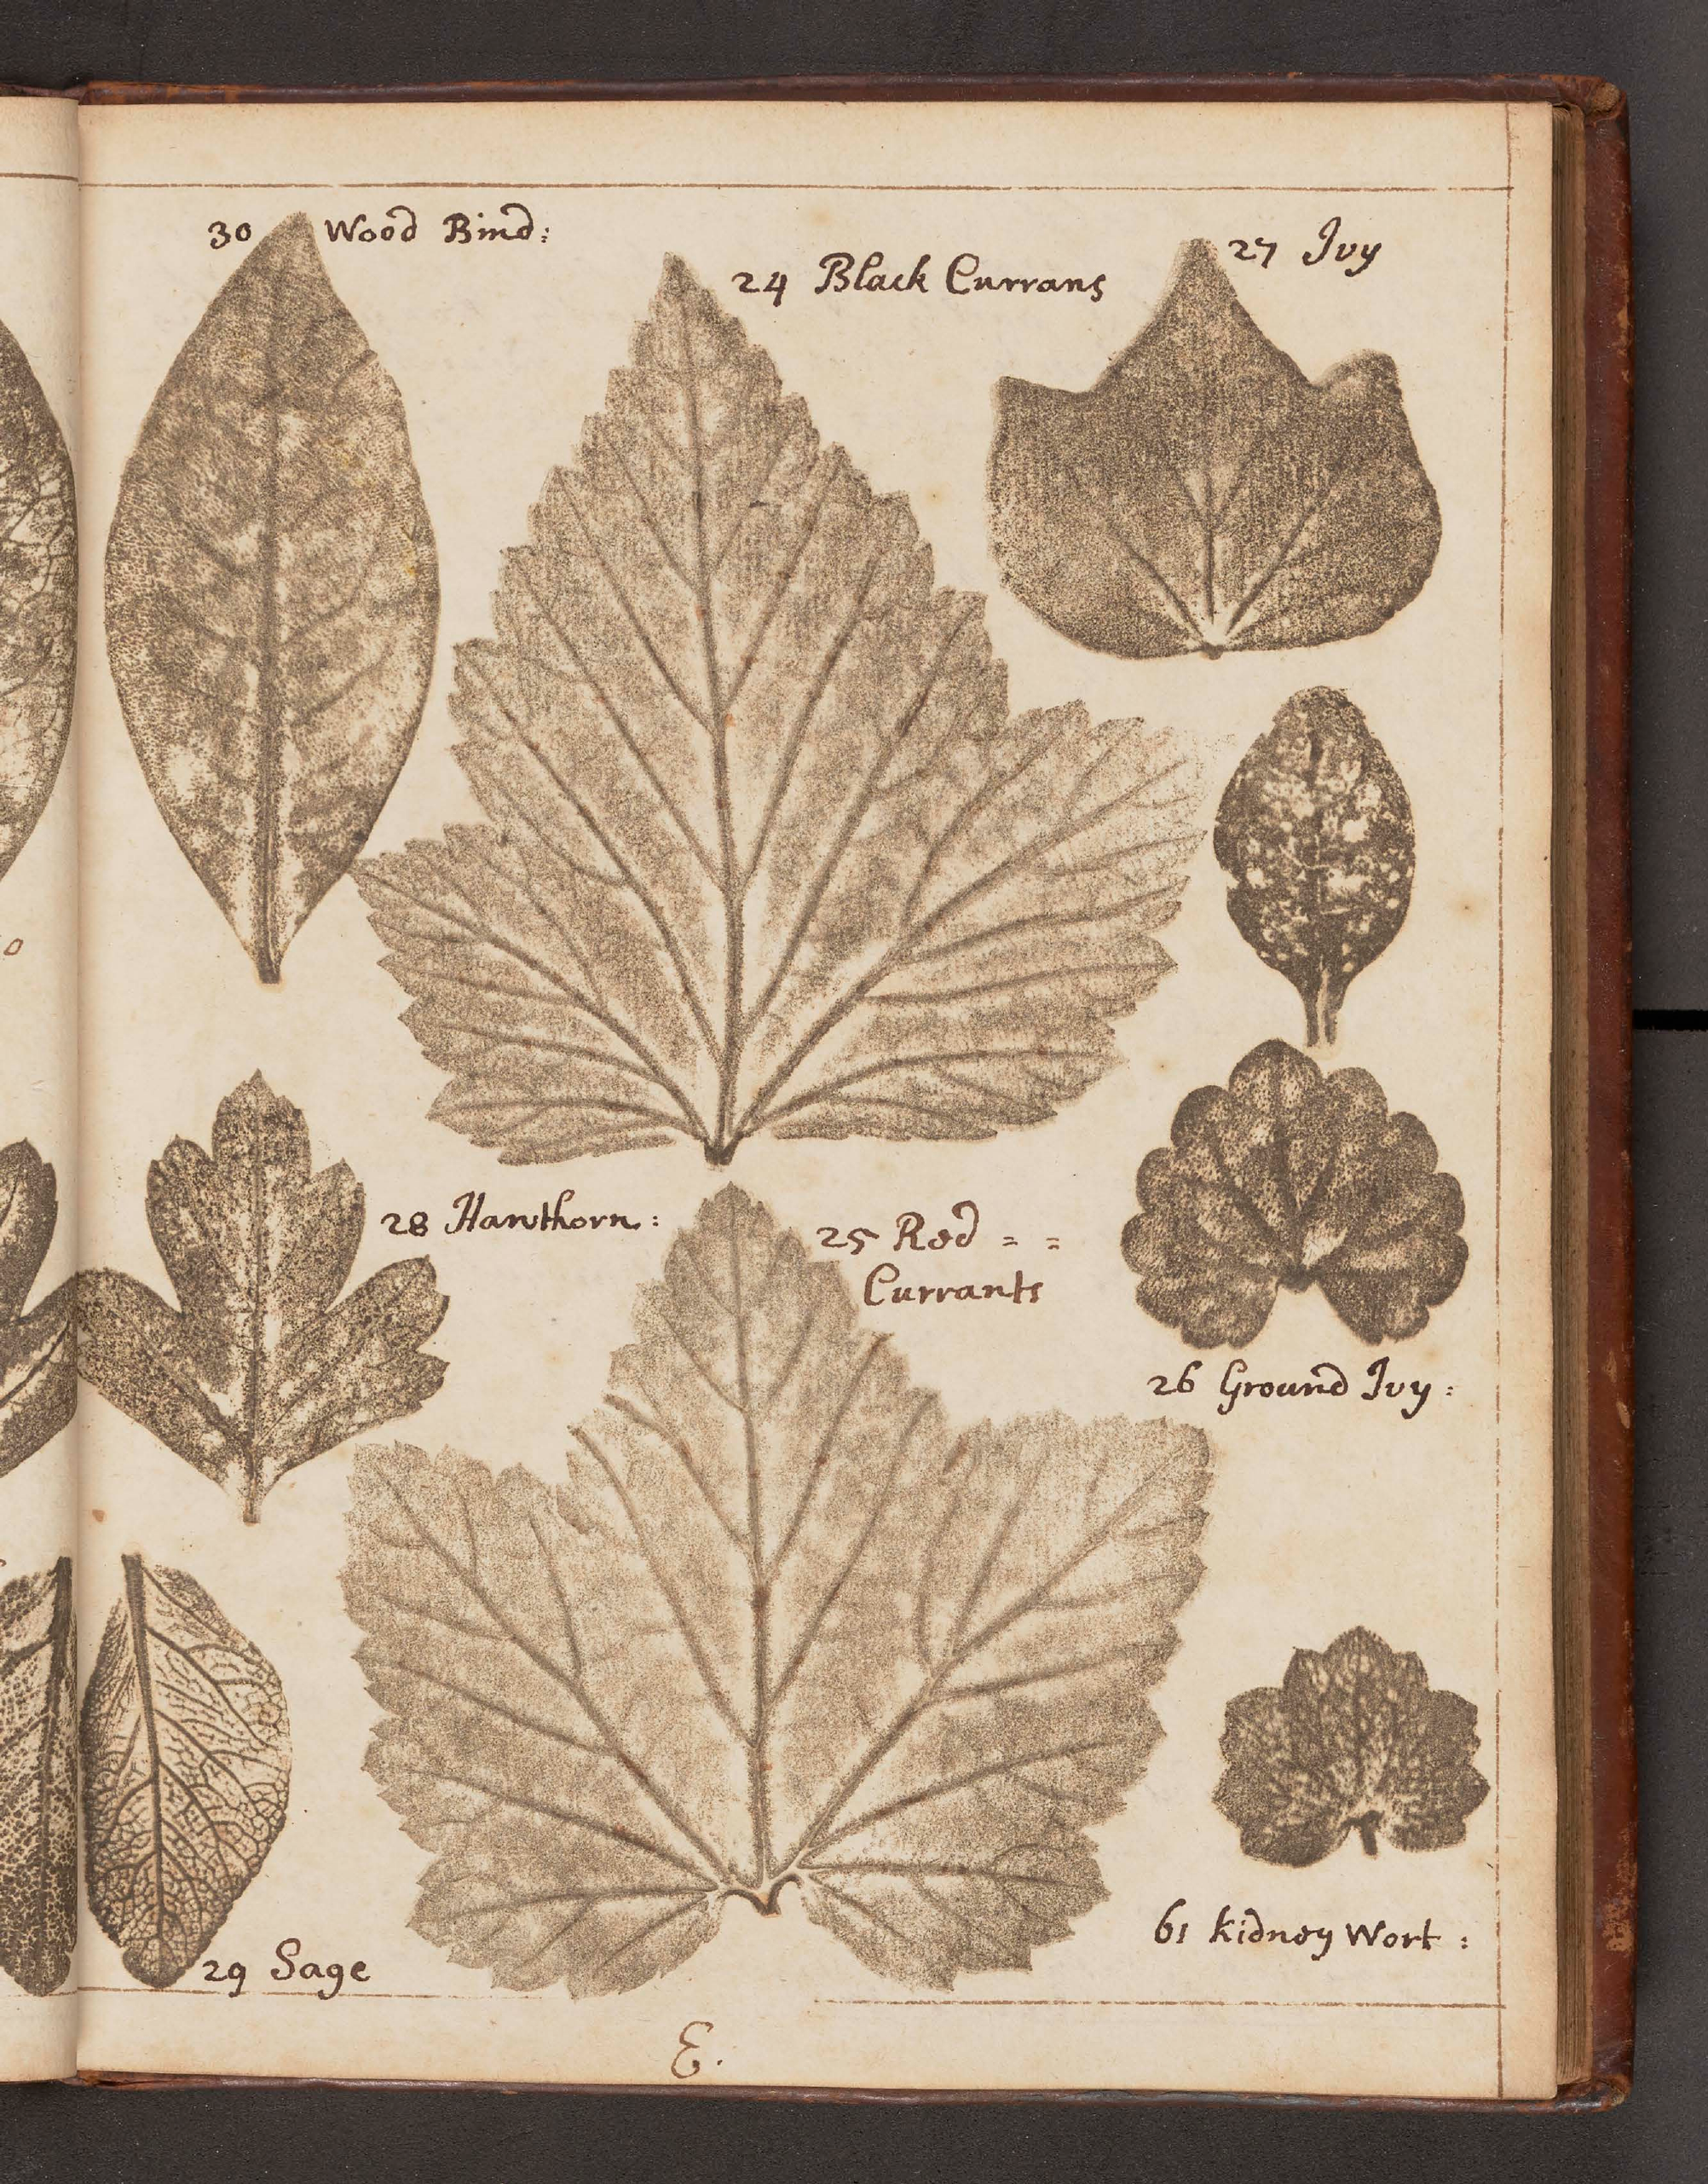 30 Wood Bind:
24 Black Currans
27 Ivy
28 Hawthorn:
25 Red = =
Currants
26 Ground Ivy:
61 kidney Wort:
29 Sage
E.